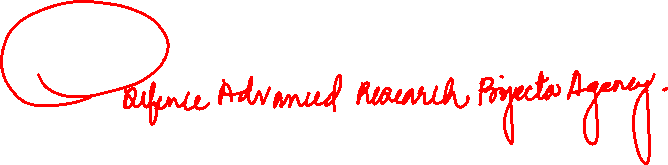 Defence Advanced Research Projects Agency.